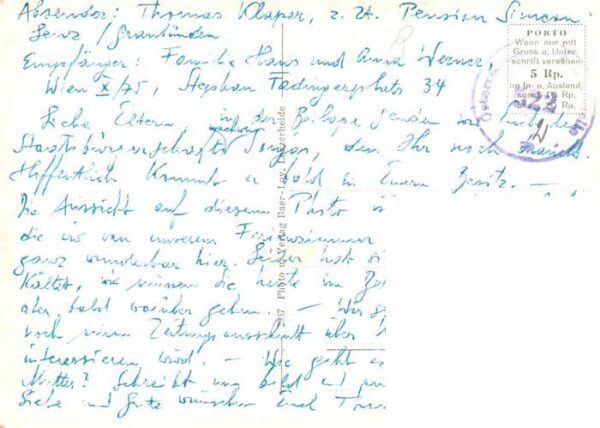 Absender: Thomas Klaper, z. Zt. Pension Simcan
Lenz / Graubünden
Empfänger: Familie Hans und Anna Werner,
Wien X/75, Stephan Fadingerplatz 34
Liebe Eltern, in der Beilage senden wir
Staatsbürgerschafts den Ihr noch braucht.
Hoffentlich kommt er bald in Euren Besitz. —
Die Aussicht auf diesem Photo is
die wir von unserem Ferienzimmer
ganz wunderbar hier. Leider hat si
Kältet, wir müssen die heute im Be
aber bald vorüber gehen. — Wir
noch einen Zeitungsausschnitt über
interessieren wird. — Wie geht es
Mutter? Schreibt uns bald
Liebe und Gute wünschen Euch Thom
PORTO
Wenn nur mit
Gruss u. Unter-
schrift versehen
5 Rp.
im In- u. Ausland,
sonst 10 Rp.
2957 Photo u. Verlag Baer-Lay, Lenzerheide